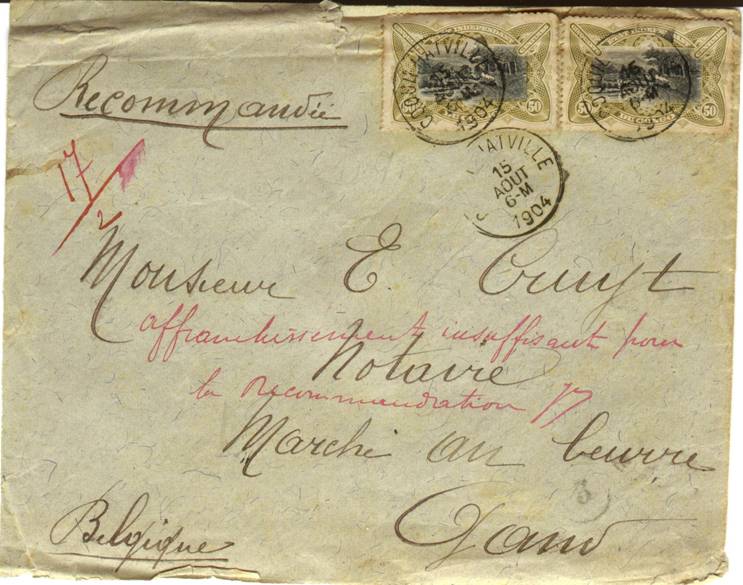 50 50 50 50
COQUILHATVILLE
1904
15
AOUT
6-M
1904
Recommandée
17/2
Monsieur E. Cruyt
affranchissement insuffisant pour
Notaire
la recommandation
Marché au beurre
Gand
Belgique